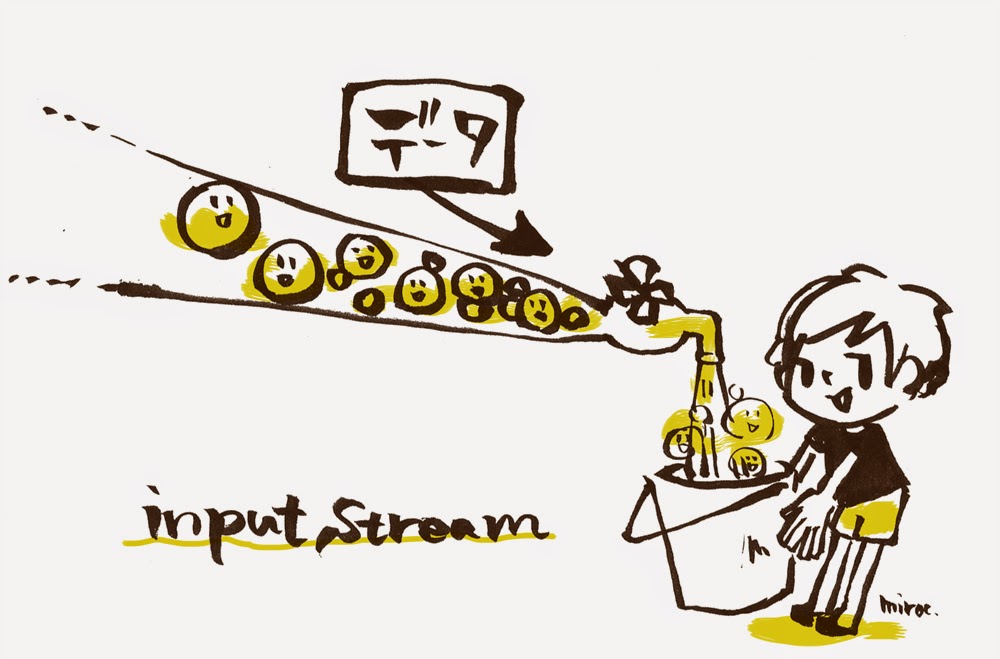 データ
input Stream
miroc.